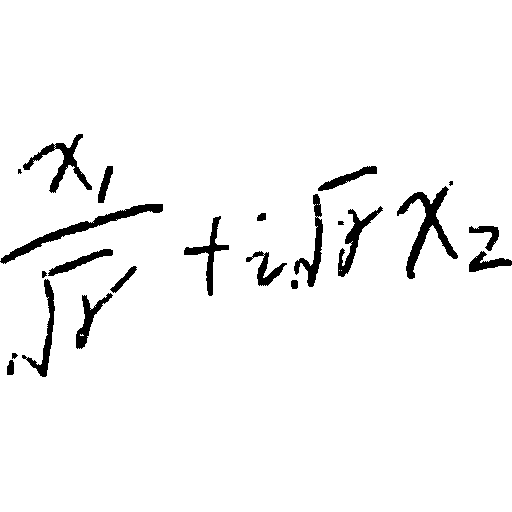 \frac{x_1}{\sqrt{\gamma}} + i\sqrt{\gamma} x_2